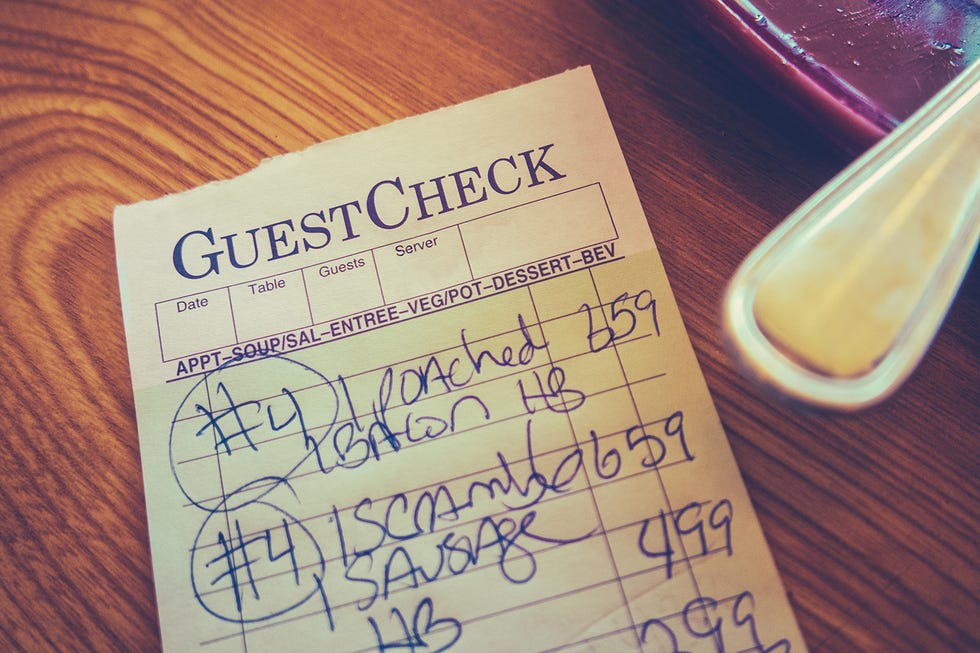 GUESTCHECK
Date Table Guests Server
APPT–SOUP/SAL–ENTREE–VEG/POT–DESSERT–BEV
#4 1 POACHED 659
1 BACON HB
#4 1 SCRAMBLED 659
1 SAUSAGE 499
HB
299